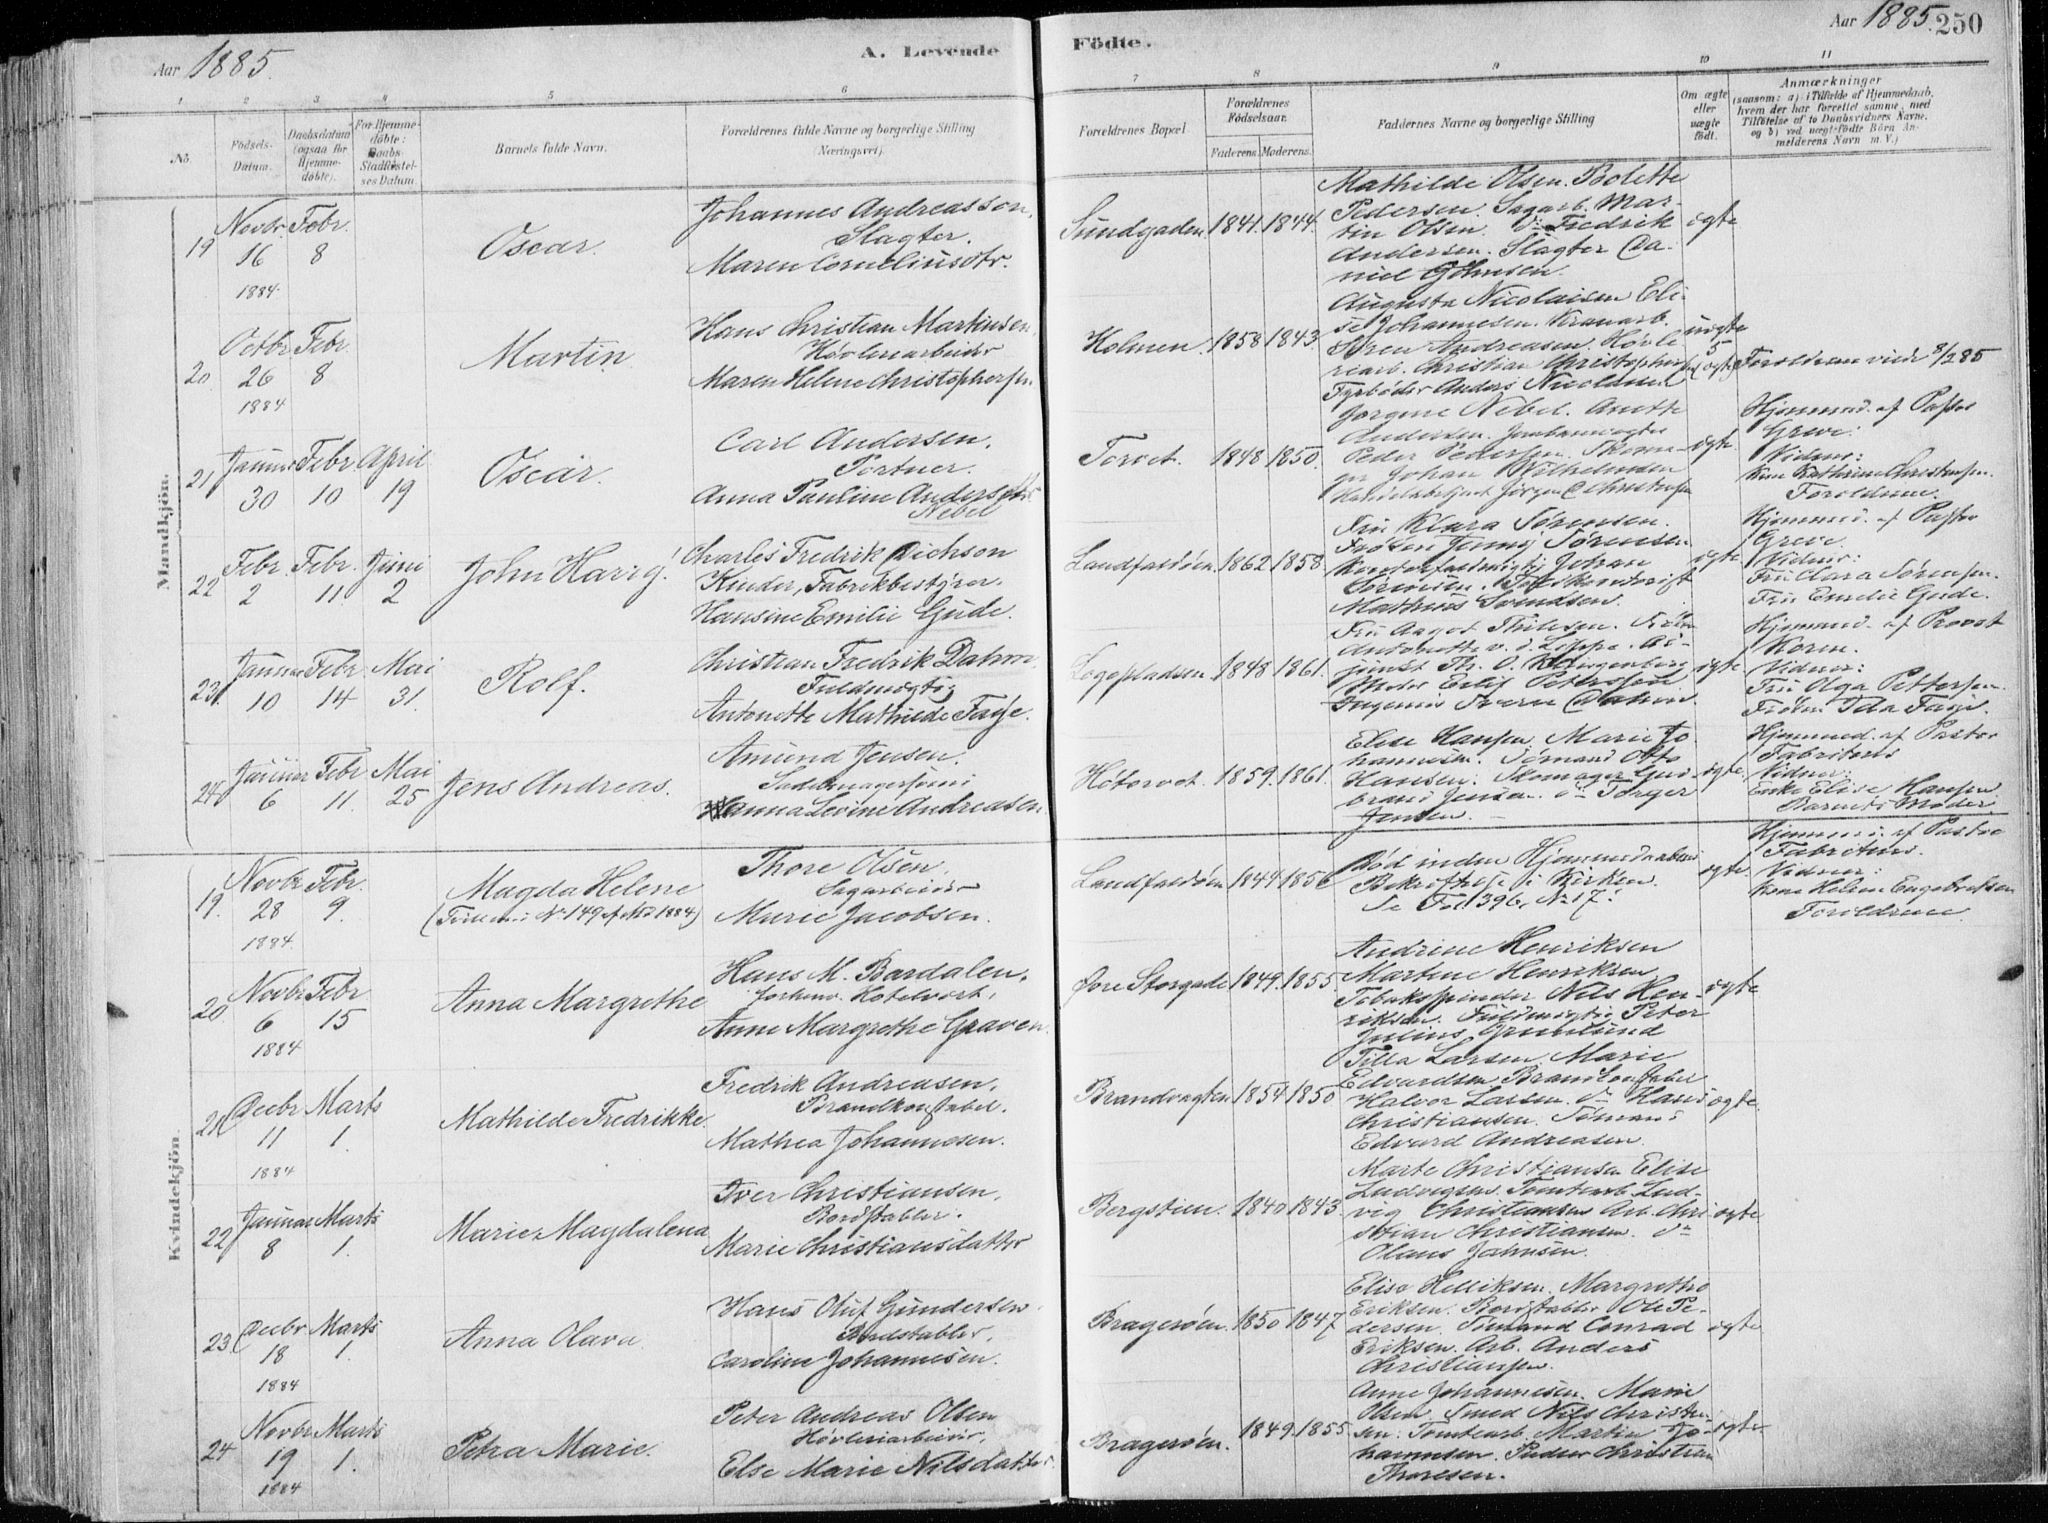 Aar 1885.
A. Levende
Födte.
Aar 1885. 250
1 2 3 4 5 6 7 8 9 10 11
No.
Födsels-Datum.
Daabsdatum (ogsaa for Hjemmedöbte).
For Hjemmedöbte: Daabs-Stadfæstelses Datum.
Barnets fulde Navn.
Forældrenes fulde Navne og borgerlige Stilling (Næringsvei).
Forældrenes Bopæl.
Forældrenes Födselsaar.
Faderens. Moderens.
Faddernes Navne og borgerlige Stilling
Om ægte eller uægte födt.
Anmærkninger (saasom: a) i Tilfælde af Hjemmedaab, hvem der har forrettet samme, med Tilföielse af to Daabsvidners Navne, og b) ved uægte födte Börn Anmelderens Navn m. V.)
Mandkjön.
19 Novbr. 16 1884 Febr. 8
Oscar.
Johannes Andreasson,
Slagter.
Maren Corneliusdtr.
Sundgaden. 1841. 1844.
Mathilde Olsen. Bolette
Pedersen. Sagarb. Mar-
tin Olsen. do Fredrik
Andersen. Slagter Da-
niel
ægte
20. Octbr 26 1884 Febr. 8
Martin
Hans Christian Martinsen,
Høvleriarbeider
Maren Helene Christophersen.
Holmen. 1858 1843.
Augusta Nicolaisen. Eli-
se Johannesen. Kranarb.
Søren Andreasen. Høvle-
riarb. Christian Christophersen
Fyrbøder Anders Nicolaisen
uægte
ægte
Forældrene viede 8/2 85
21 Januar 30 Febr 10 April 19
Oscar.
Carl Andersen,
Portner.
Anna Pauline Andersdtr
Nebel
Torvet. 1848 1850.
Jørgine Nebel. Anette
Andersen.
Peder Pedersen. Skoma-
ger Johan Wilhelmsen
Handelsbetjent Jørgen C Christensen
ægte
Hjemmed. af Pastor
Greve.
Vidner:
Kone Kathrine Christensen.
Forældrene.
22 Febr. 2 Febr. 11 Juni 2
John Harig.
Charles Fredrik Dichson
Kinder, Fabrikbestyrer.
Hansine Emilie Gude.
Landfaldøen. 1862 1858.
Fru Klara Sørensen.
Frøken Jenny Sørensen
Johan
Sørensen.
Mathias Svendsen.
ægte
Hjemmed. af Pastor
Greve
Vidner:
Fru Clara Sørensen.
Fru Emilie Gude.
23. Januar 10 Febr 14 Mai 31.
Rolf.
Christian Fredrik Dahm,
Fuldmægtig
Antonette Mathilde Faye.
Løgepladsen 1848 1861.
Fru Aagot Thilesen. Frøken
Antonette v. d. Lippe. Ad-
junkt Th. O. Klingenberg
Maler Eilif Petersen
Ingeniør Sverre Dahm.
ægte
Hjemmed. af Provst
Koren.
Vidner:
Fru Olga Pettersen.
Frøken Ida Faye.
24 Januar 6 Febr 11. Mai 25
Jens Andreas.
Amund Jensen.
Sadelmagersvend
Hanna Levine Andreasen.
Høtorvet. 1859. 1861.
Elise Hansen. Marie Jo-
hannesen. Sømand Otto
Hansen. Skomager Gul-
brand Jensen. do Torger
Jensen. —
ægte.
Hjemmed. af Pastor
Fabritius
Vidner:
Enke Elise Hansen
Barnets Moder
Kvindekjön.
19. Novbr 28 1884. Febr. 9.
Magda Helene
(Tvilling No 149 af 1884)
Thore Olsen.
Sagarbeider
Marie Jacobsen.
Landfaldøen 1844 1856
Død inden Hjemmedaabens
Bekræftelse i Kirken.
Se Fol 396, No 17.
ægte.
Hjemmed. af Pastor
Fabritius.
Vidner:
Kone Helene Engebretsen
Forældrene.
20 Novbr 6 1884 Febr 15
Anna Margrethe
Hans M. Bardalen,
Forhenv. Hotelvert,
Anne Margrethe Graven.
Øvre Storgade 1849. 1855.
Andrine Henriksen
Martine Henriksen
Tobakspinder Nils Hen-
riksen. Fuldmægtig Peter
Julius Grønlund
ægte
21 Decbr 11 1884 Marts 1.
Mathilde Fredrikke.
Fredrik Andreasen,
Brandkonstabel.
Mathea Johannesen.
Brandvagten 1854 1850
Tilla Larsen. Marie
Edvardsen. Brandkonstabel
Halvor Larsen. do Hans
Christiansen. Sømand
Edvard Andreasen.
ægte.
22 Januar 8 Marts 1.
Marie Magdalena
Iver Christiansen,
Bordstabler.
Marie Christiansdatter
Bergstien. 1840 1843.
Marte Christiansen Elise
Ludvigsen. Tomtearb. Lud-
vig Christiansen Arb. Chri-
stian Christiansen. do
Olaus Johnsen.
ægte
23. Decbr 18 1884 Marts 1.
Anna Olava
Hans Oluf Gundersen,
Bordstabler.
Caroline Johannesen.
Bragerøen. 1850 1847
Elise Helliksen. Margrethe
Eriksen. Bordstabler Ole Pe-
dersen. Sømand Conrad
Eriksen. Arb. Anders
Christiansen.
ægte
24 Novbr 19 1884 Marts 1.
Petra Marie.
Peter Andreas Olsen
Høvleriarbeider.
Else Marie Nilsdatter
Bragerøen. 1849. 1855.
Anne Johannesen. Marie
Olsen. Smed Nils Christen-
sen. Tomtearb. Martin Jo-
hannesen. Christian
Thoresen.
ægte